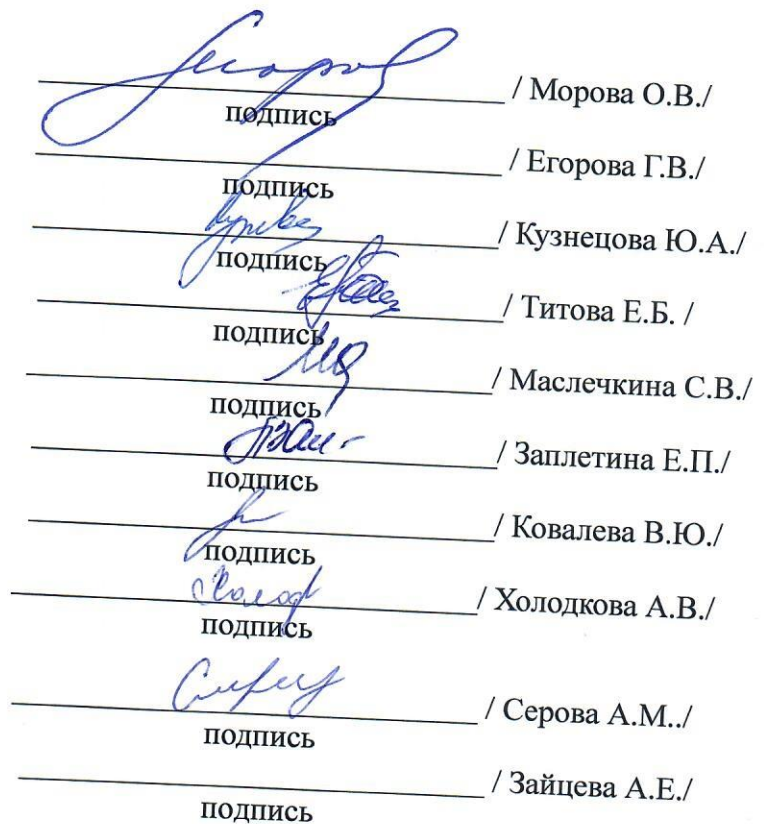 / Морова О.В./
подпись
/ Егорова Г.В./
подпись
/ Кузнецова Ю.А./
подпись
/ Титова Е.Б. /
подпись
/ Маслечкина С.В./
подпись
/ Заплетина Е.П./
подпись
/ Ковалева В.Ю./
подпись
/ Холодкова А.В./
подпись
/ Серова А.М../
подпись
/ Зайцева А.Е./
подпись